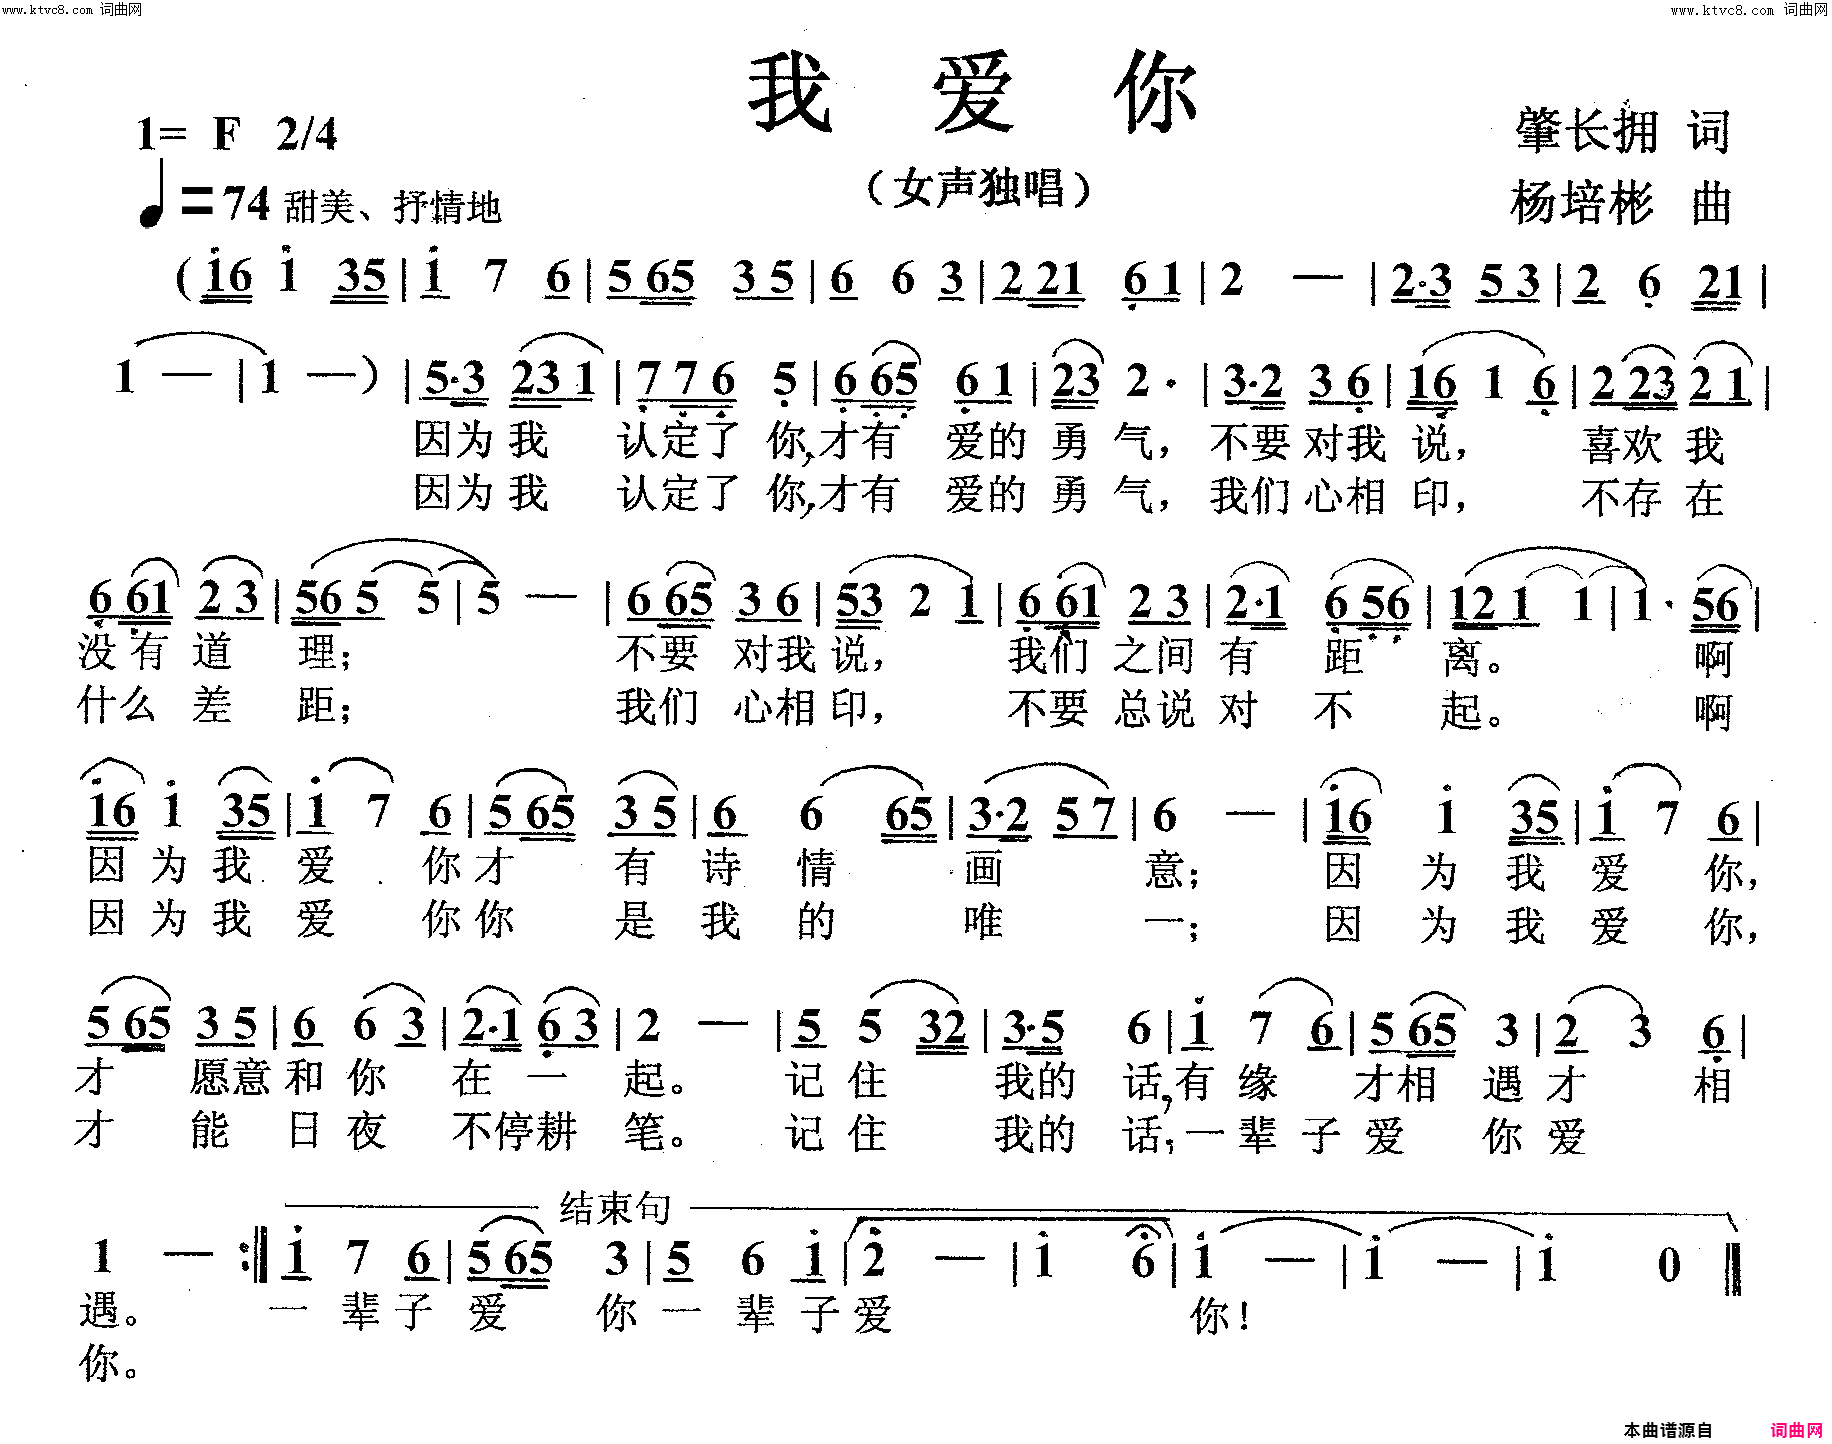 www.ktvc8.com 词曲网 www.ktvc8.com 词曲网
我 爱 你
1= F 2/4 肇长拥 词
（女声独唱）
♩=74 甜美、抒情地 杨培彬 曲
( 16 1 35 | 1 7 6 | 5 65 3 5 | 6 6 3 | 2 21 6 1 | 2 — | 2·3 5 3 | 2 6 21 |
1 — | 1 — ) | 5·3 23 1 | 7 7 6 5 | 6 65 6 1 | 23 2 · | 3·2 3 6 | 16 1 6 | 2 23 2 1 |
因为我 认定了 你,才有 爱的 勇 气，不要对我 说， 喜欢 我
因为我 认定了 你,才有 爱的 勇 气，我们心相 印， 不存 在
6 61 2 3 | 56 5 5 | 5 — | 6 65 3 6 | 53 2 1 | 6 61 2 3 | 2·1 6 56 | 12 1 1 | 1 · 56 |
没有 道 理； 不要 对我 说， 我们 之间 有 距 离。 啊
什么 差 距； 我们 心相 印， 不要 总说 对 不 起。 啊
16 1 35 | 1 7 6 | 5 65 3 5 | 6 6 65 | 3·2 5 7 | 6 — | 16 1 35 | 1 7 6 |
因 为 我 爱 你 才 有 诗 情 画 意； 因 为 我 爱 你，
因 为 我 爱 你 你 是 我 的 唯 一； 因 为 我 爱 你，
5 65 3 5 | 6 6 3 | 2·1 6 3 | 2 — | 5 5 32 | 3·5 6 | 1 7 6 | 5 65 3 | 2 3 6 |
才 愿意 和 你 在 一 起。 记 住 我的 话,有 缘 才相 遇 才 相
才 能 日 夜 不停耕 笔。 记 住 我的 话,一 辈 子 爱 你 爱
结束句
1 — :‖ 1 7 6 | 5 65 3 | 5 6 1 | 2 — | 1 6 | 1 — | 1 — | 1 0 ‖
遇。 一 辈 子 爱 你 一 辈 子 爱 你！
你。
本曲谱源自 词曲网